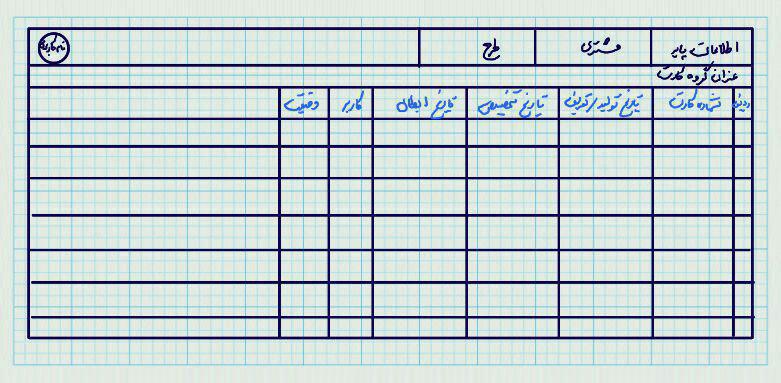 اطلاعات پایه مشتری طرح نام کاربری
عنوان گروه کارت
ردیف شماره کارت تاریخ تولید/تعریف تاریخ تخصیص تاریخ ابطال کاربر وضعیت